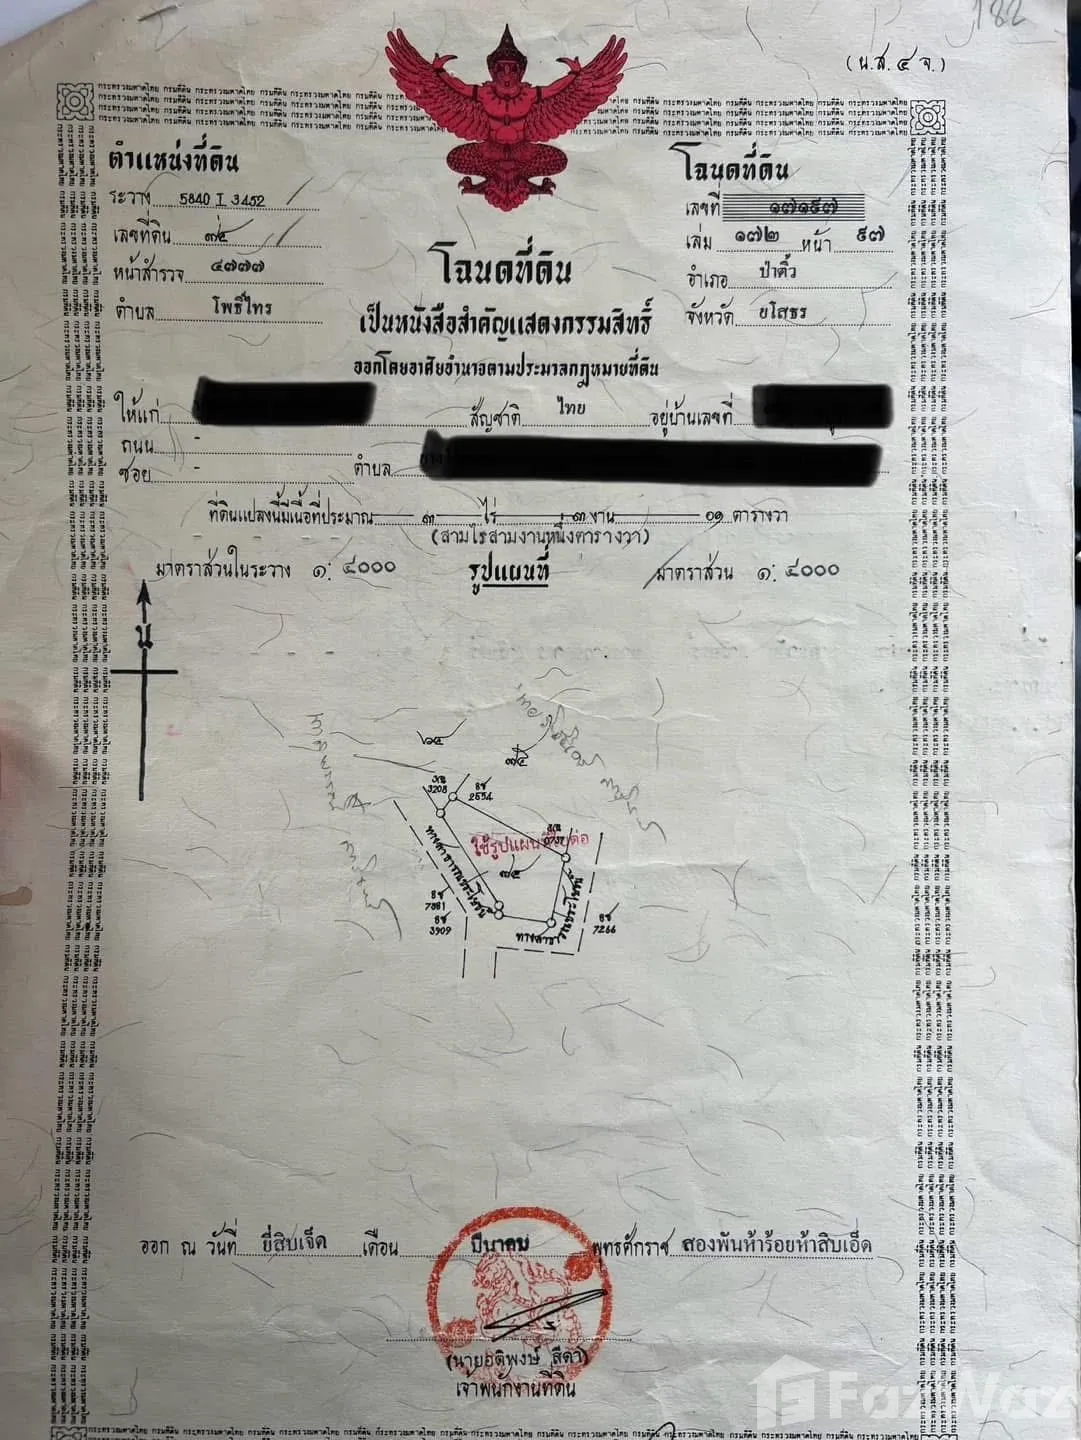 (น.ส.๔ จ.)
ตำแหน่งที่ดิน
ระวาง 5840 I 3452
เลขที่ดิน ๗๕
หน้าสำรวจ ๔๗๗๗
ตำบล โพธิ์ไทร
โฉนดที่ดิน
เลขที่ ๑๗๑๙๗
เล่ม ๑๗๒ หน้า ๙๗
อำเภอ ป่าติ้ว
จังหวัด ยโสธร
โฉนดที่ดิน
เป็นหนังสือสำคัญแสดงกรรมสิทธิ์
ออกโดยอาศัยอำนาจตามประมวลกฎหมายที่ดิน
ให้แก่ สัญชาติ ไทย อยู่บ้านเลขที่
ถนน -
ซอย - ตำบล
ที่ดินแปลงนี้มีเนื้อที่ประมาณ ๓ ไร่ ๓ งาน ๐๑ ตารางวา
(สามไร่สามงานหนึ่งตารางวา)
มาตราส่วนในระวาง ๑: ๔๐๐๐ รูปแผนที่ มาตราส่วน ๑: ๔๐๐๐
น
๖๕
๗๔
3208
2654
ใช้รูปแผนที่ใบต่อ
๗๕
ทางสาธารณประโยชน์
7881
3909
7266
ออก ณ วันที่ ยี่สิบเจ็ด เดือน มีนาคม พุทธศักราช สองพันห้าร้อยห้าสิบเอ็ด
(นายอดิพงษ์ สีดา)
เจ้าพนักงานที่ดิน
FazWaz